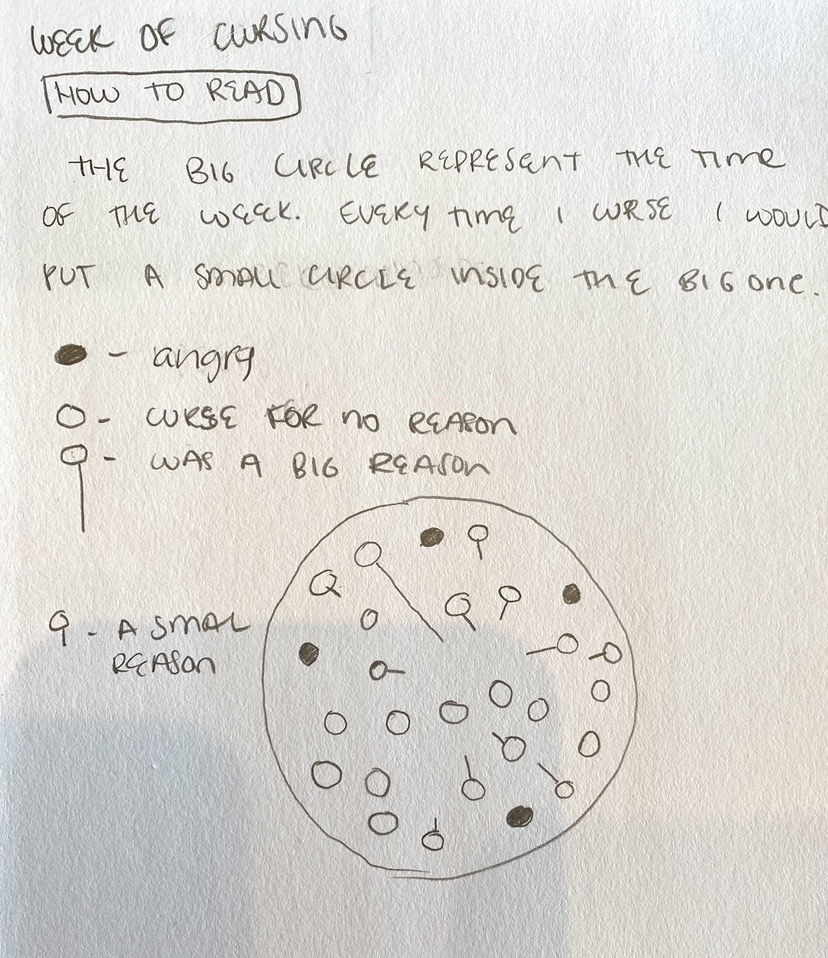 WEEK OF CURSING
HOW TO READ
THE BIG CIRCLE REPRESENT THE TIME
OF THE WEEK. EVERY TIME I CURSE I WOULD
PUT A SMALL CIRCLE INSIDE THE BIG ONE.
- angry
- CURSE FOR NO REASON
- WAS A BIG REASON
- A SMAL
REASON